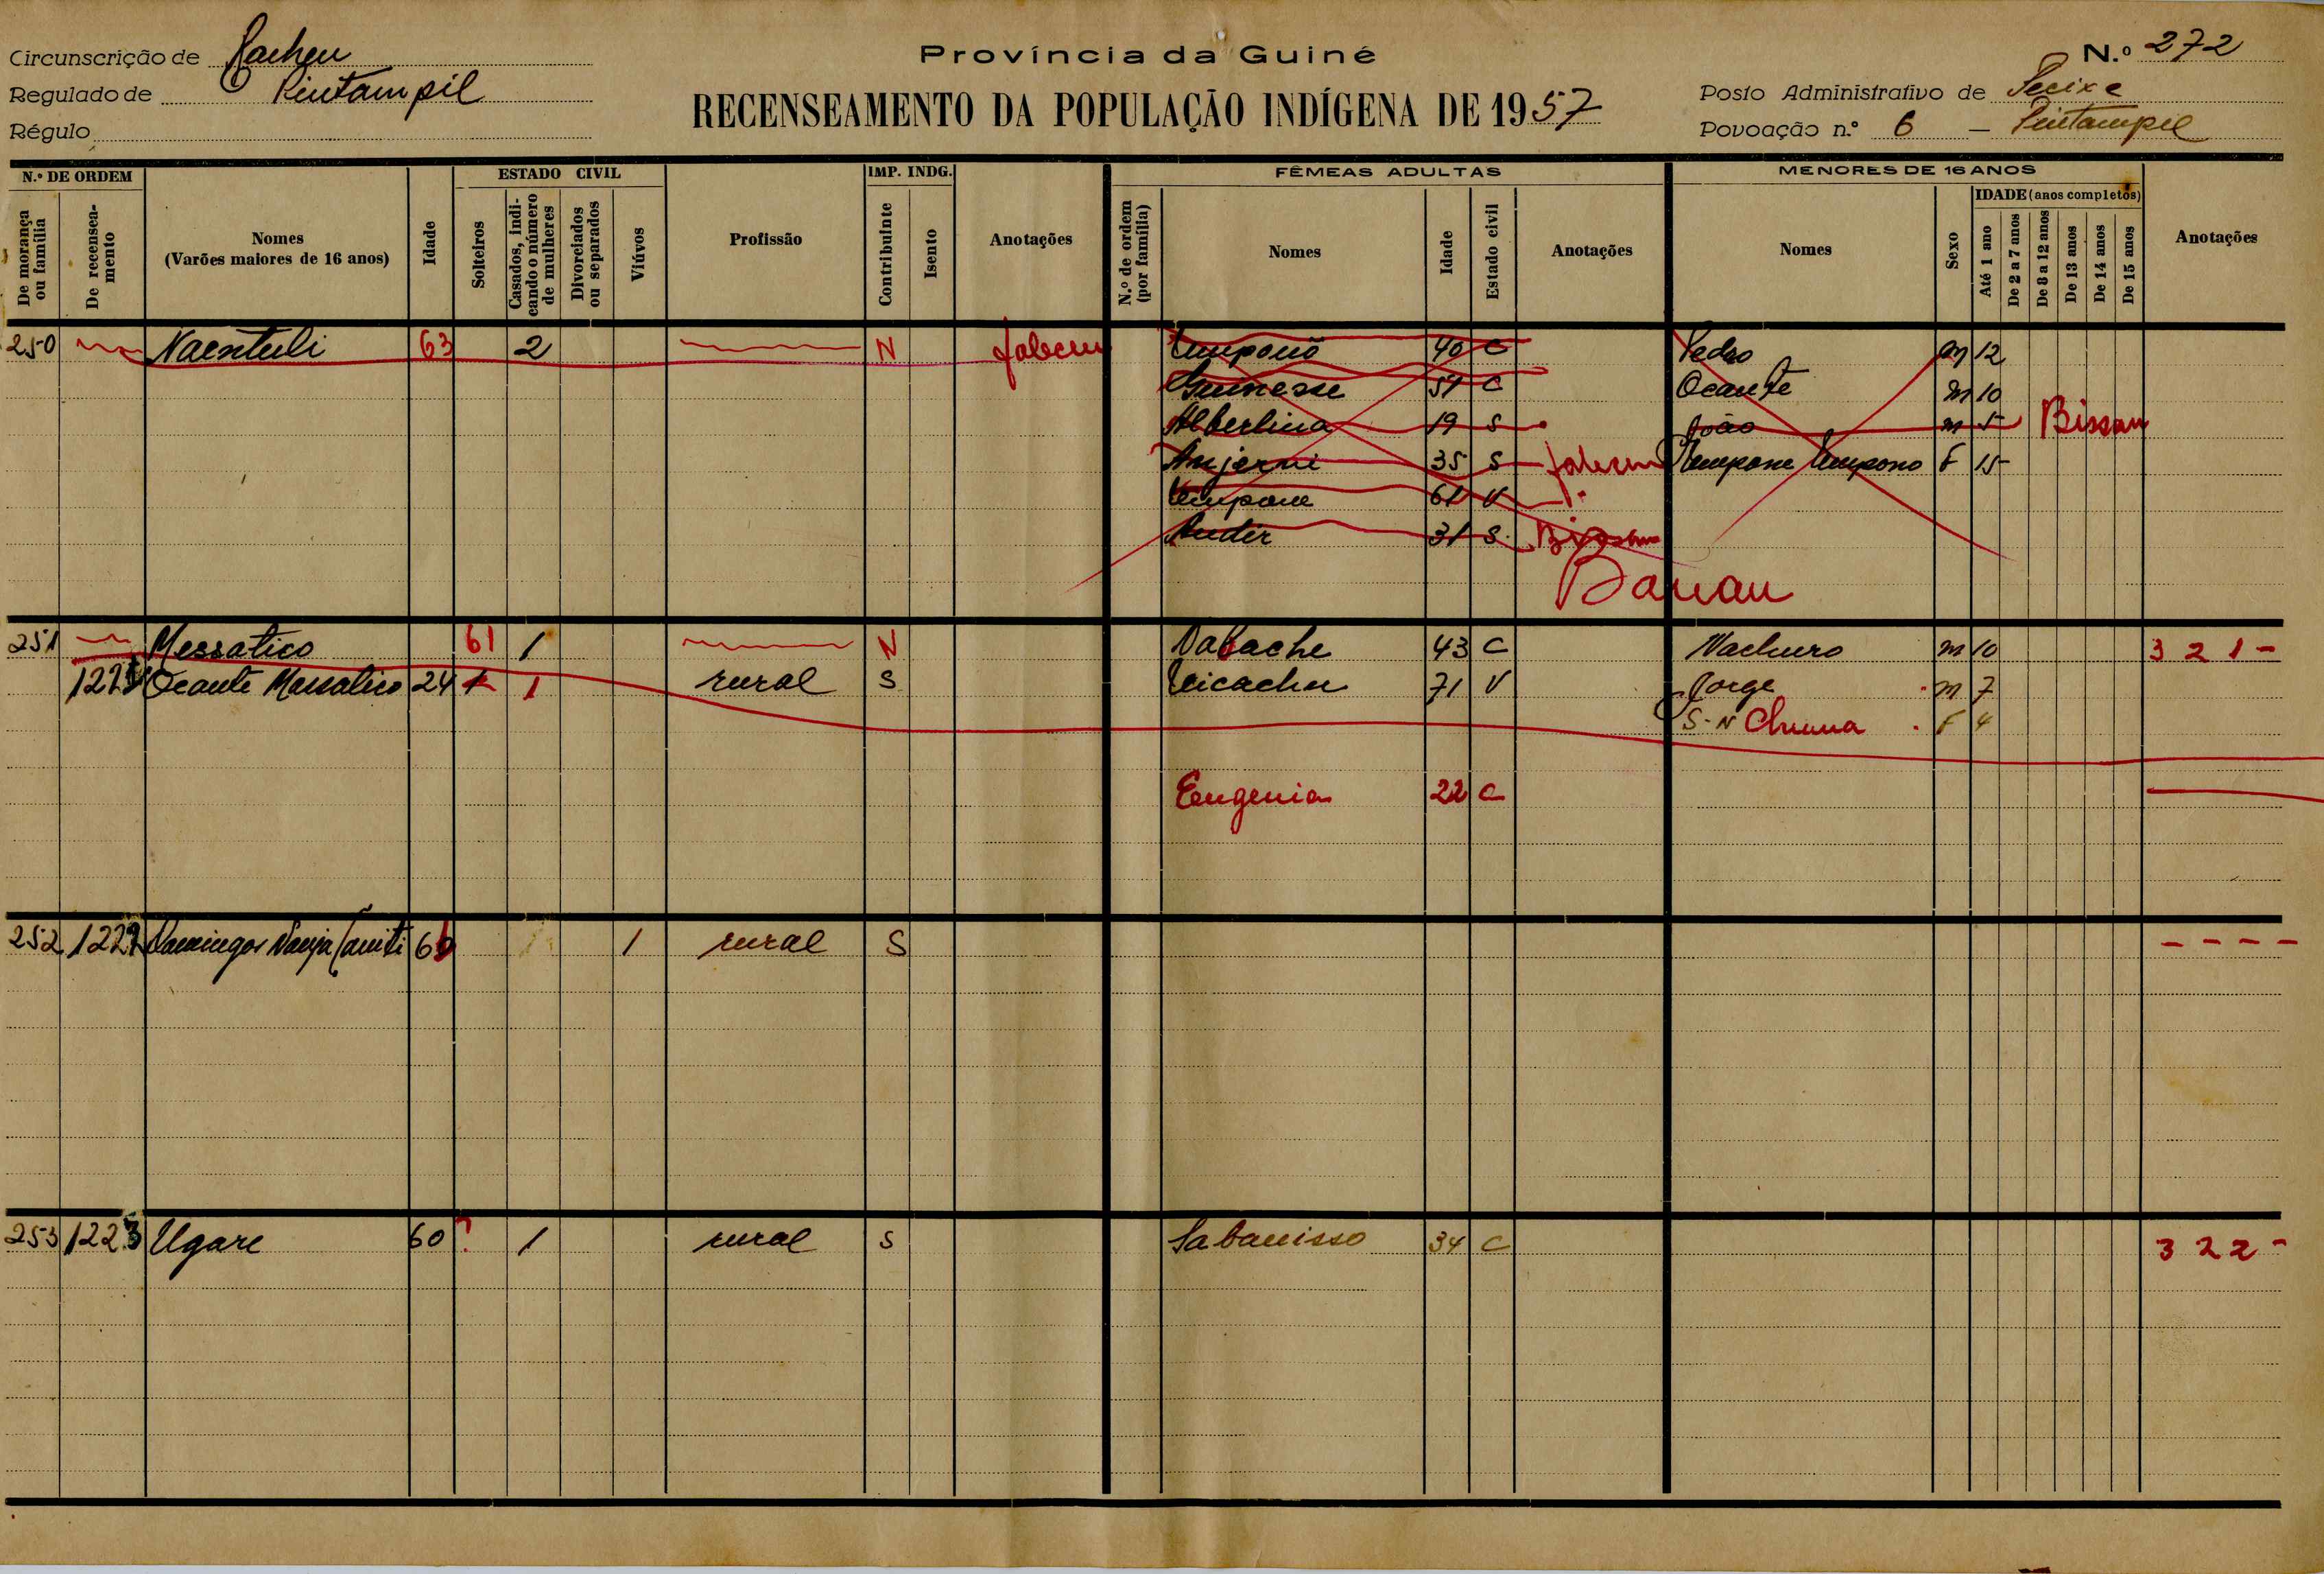 Circunscrição de Cacheu
Regulado de Pintampil
Régulo
Província da Guiné
RECENSEAMENTO DA POPULAÇÃO INDÍGENA DE 1957
N.º 272
Posto Administrativo de Pecixe
Povoação n.º 6 — Pintampil
N.º DE ORDEM
De morança ou família
De recenseamento
Nomes
(Varões maiores de 16 anos)
Idade
ESTADO CIVIL
Solteiros
Casados, indicando o número de mulheres
Divorciados ou separados
Viúvos
Profissão
IMP. INDG.
Contribuinte
Isento
Anotações
FÊMEAS ADULTAS
N.º de ordem (por família)
Nomes
Idade
Estado civil
Anotações
MENORES DE 16 ANOS
Nomes
Sexo
IDADE (anos completos)
Até 1 ano
De 2 a 7 anos
De 8 a 12 anos
De 13 anos
De 14 anos
De 15 anos
Anotações
250 Naentuli 63 2 N faleceu 40 C Pedro m 12
51 C Ocante m 10
Albertina 19 S João m 5 Bissau
35 S faleceu F 15
61 V
Audir 31 S Bissau
251 Messatico 61 1 N Nabache 43 C Nachuro m 10 3 2 1 -
Ocante Massatico 24 1 rural S 71 V Jorge m 7
S-N F 4
Eugenia 22 C
252 Domingos 1 rural S - - - -
253 1223 Ugare 60 ? 1 rural S Sabanisso 34 C 3 2 2 -